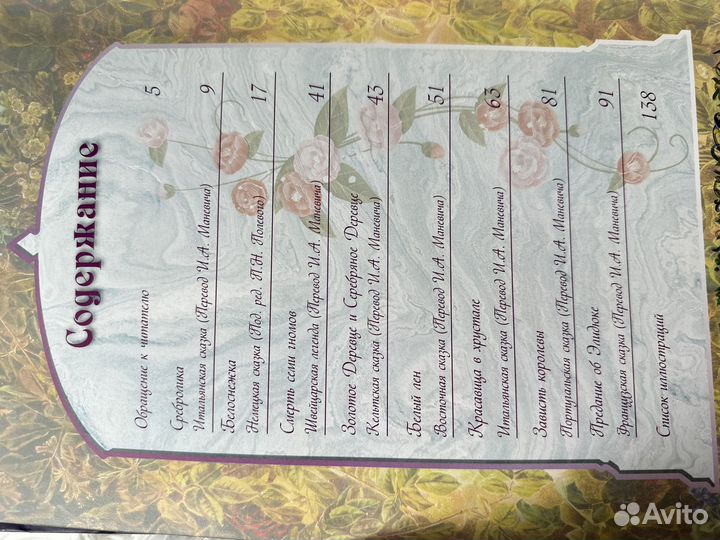 Содержание
Обращение к читателю 5
Сребролика
Итальянская сказка (Перевод И.А. Маневича) 9
Белоснежка
Немецкая сказка (Под. ред. П.Н. Полевого) 17
Смерть семи гномов
Швейцарская легенда (Перевод И.А. Маневича) 41
Золотое Деревце и Серебряное Деревце
Кельтская сказка (Перевод И.А. Маневича) 43
Белый лен
Восточная сказка (Перевод И.А. Маневича) 51
Красавица в хрустале
Итальянская сказка (Перевод И.А. Маневича) 63
Зависть королевы
Португальская сказка (Перевод И.А. Маневича) 81
Предание об Элидюке
Французская сказка (Перевод И.А. Маневича) 91
Список иллюстраций 138
Avito